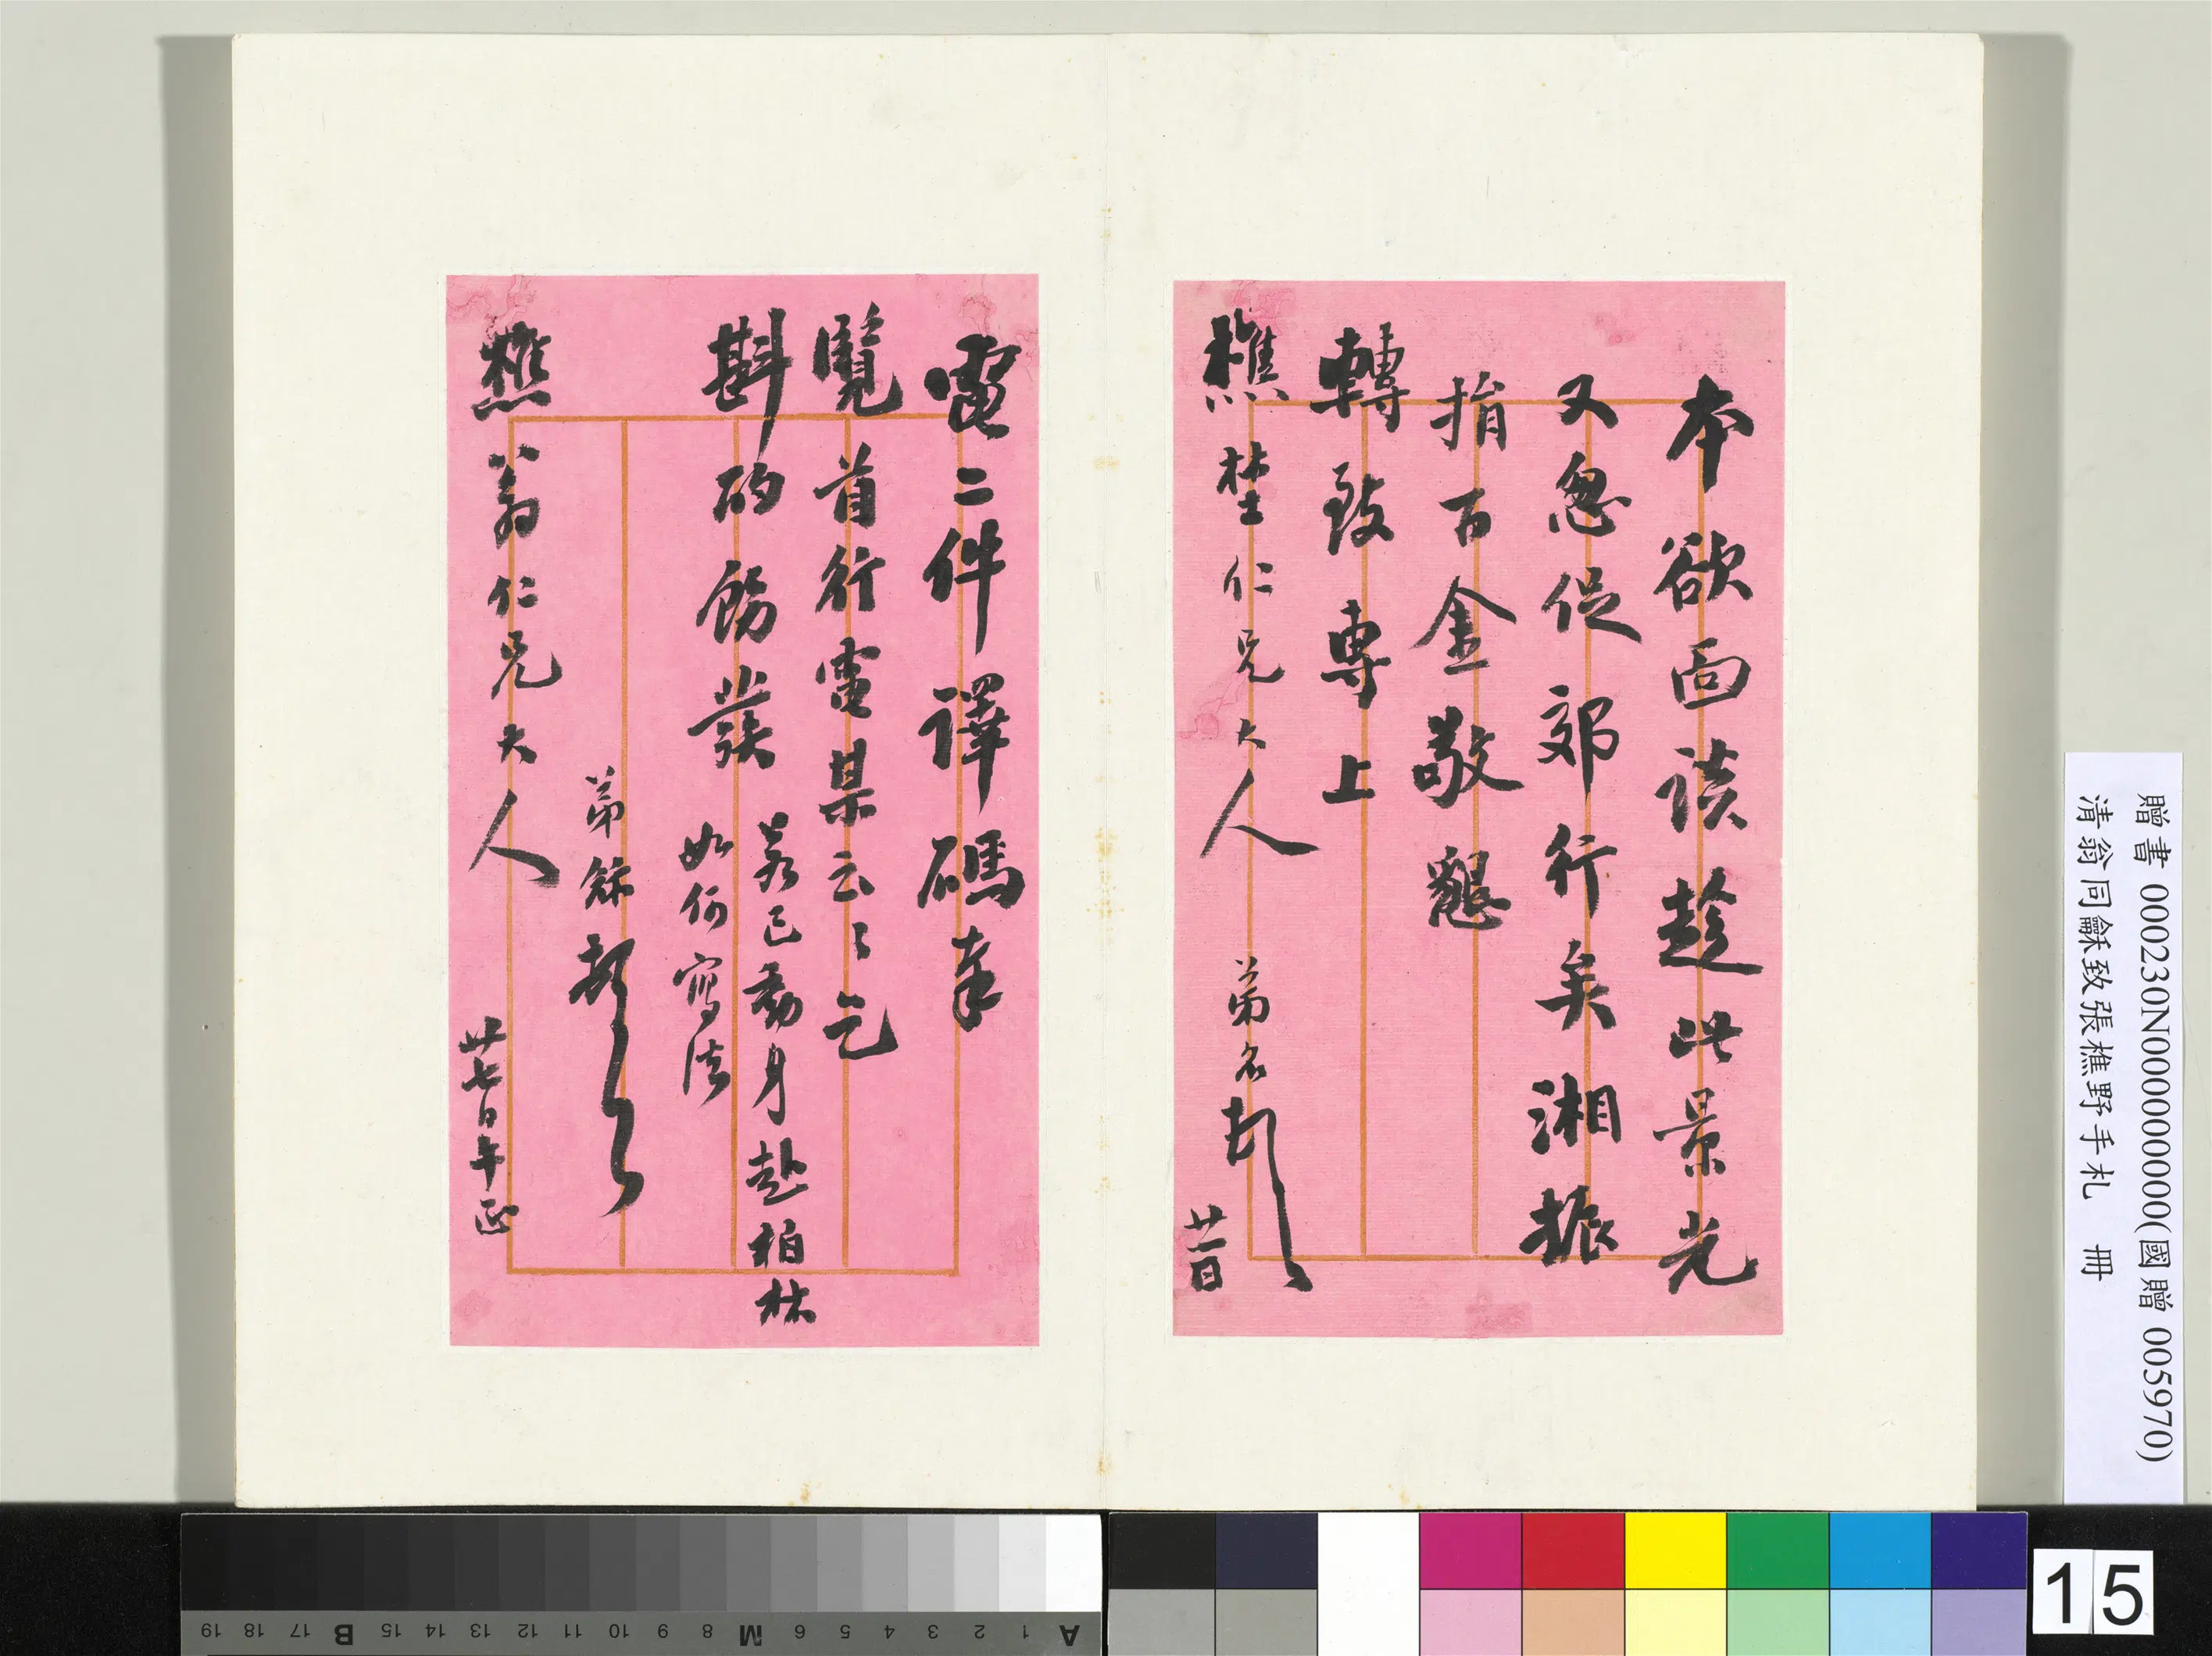 本欲面談趁此景光
又忽促郊行矣湘振
捐百金敬懇
轉致專上
樵埜仁兄大人
弟名頓
廿一日
電二件譯碼奉
覽首行電某云々乞
斟酌飭發
若已動身赴柏林
如何寫法
弟龢頓
樵翁仁兄大人
廿七日午正
贈書 000230N000000000(國贈 005970)
清翁同龢致張樵野手札 冊
A 1 2 3 4 5 6 M 8 9 10 11 12 13 14 15 B 17 18 19
15